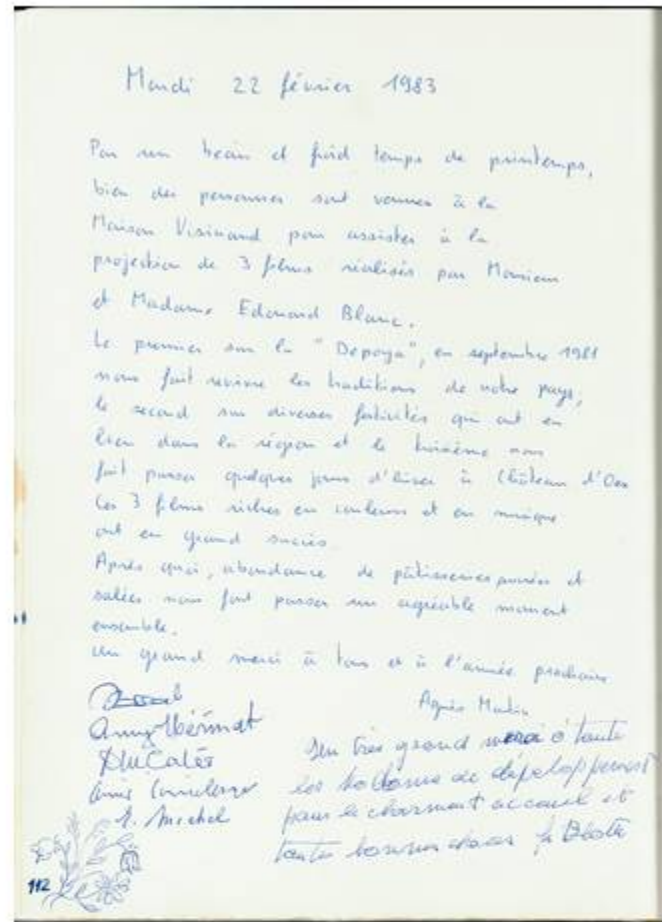 Mardi 22 février 1983
Par un beau et froid temps de printemps,
bien des personnes sont venues à la
Maison Visinand pour assister à la
projection de 3 films réalisés par Monsieur
et Madame Edouard Blanc.
Le premier sur la "Depoya", en septembre 1981
nous fait revivre les traditions de notre pays;
le second sur diverses festivités qui ont eu
lieu dans la région et le troisième nous
fait passer quelques jours d'hiver à Château d'Oex
Ces 3 films riches en couleurs et en musique
ont eu grand succès.
Après quoi, abondance de pâtisseries sucrées et
salées nous font passer un agréable moment
ensemble.
Un grand merci à tous et à l'année prochaine
Agnès
Anny
A. Michel
un très grand merci à toute
les
pour le charmant accueil et
toutes bonnes choses
112